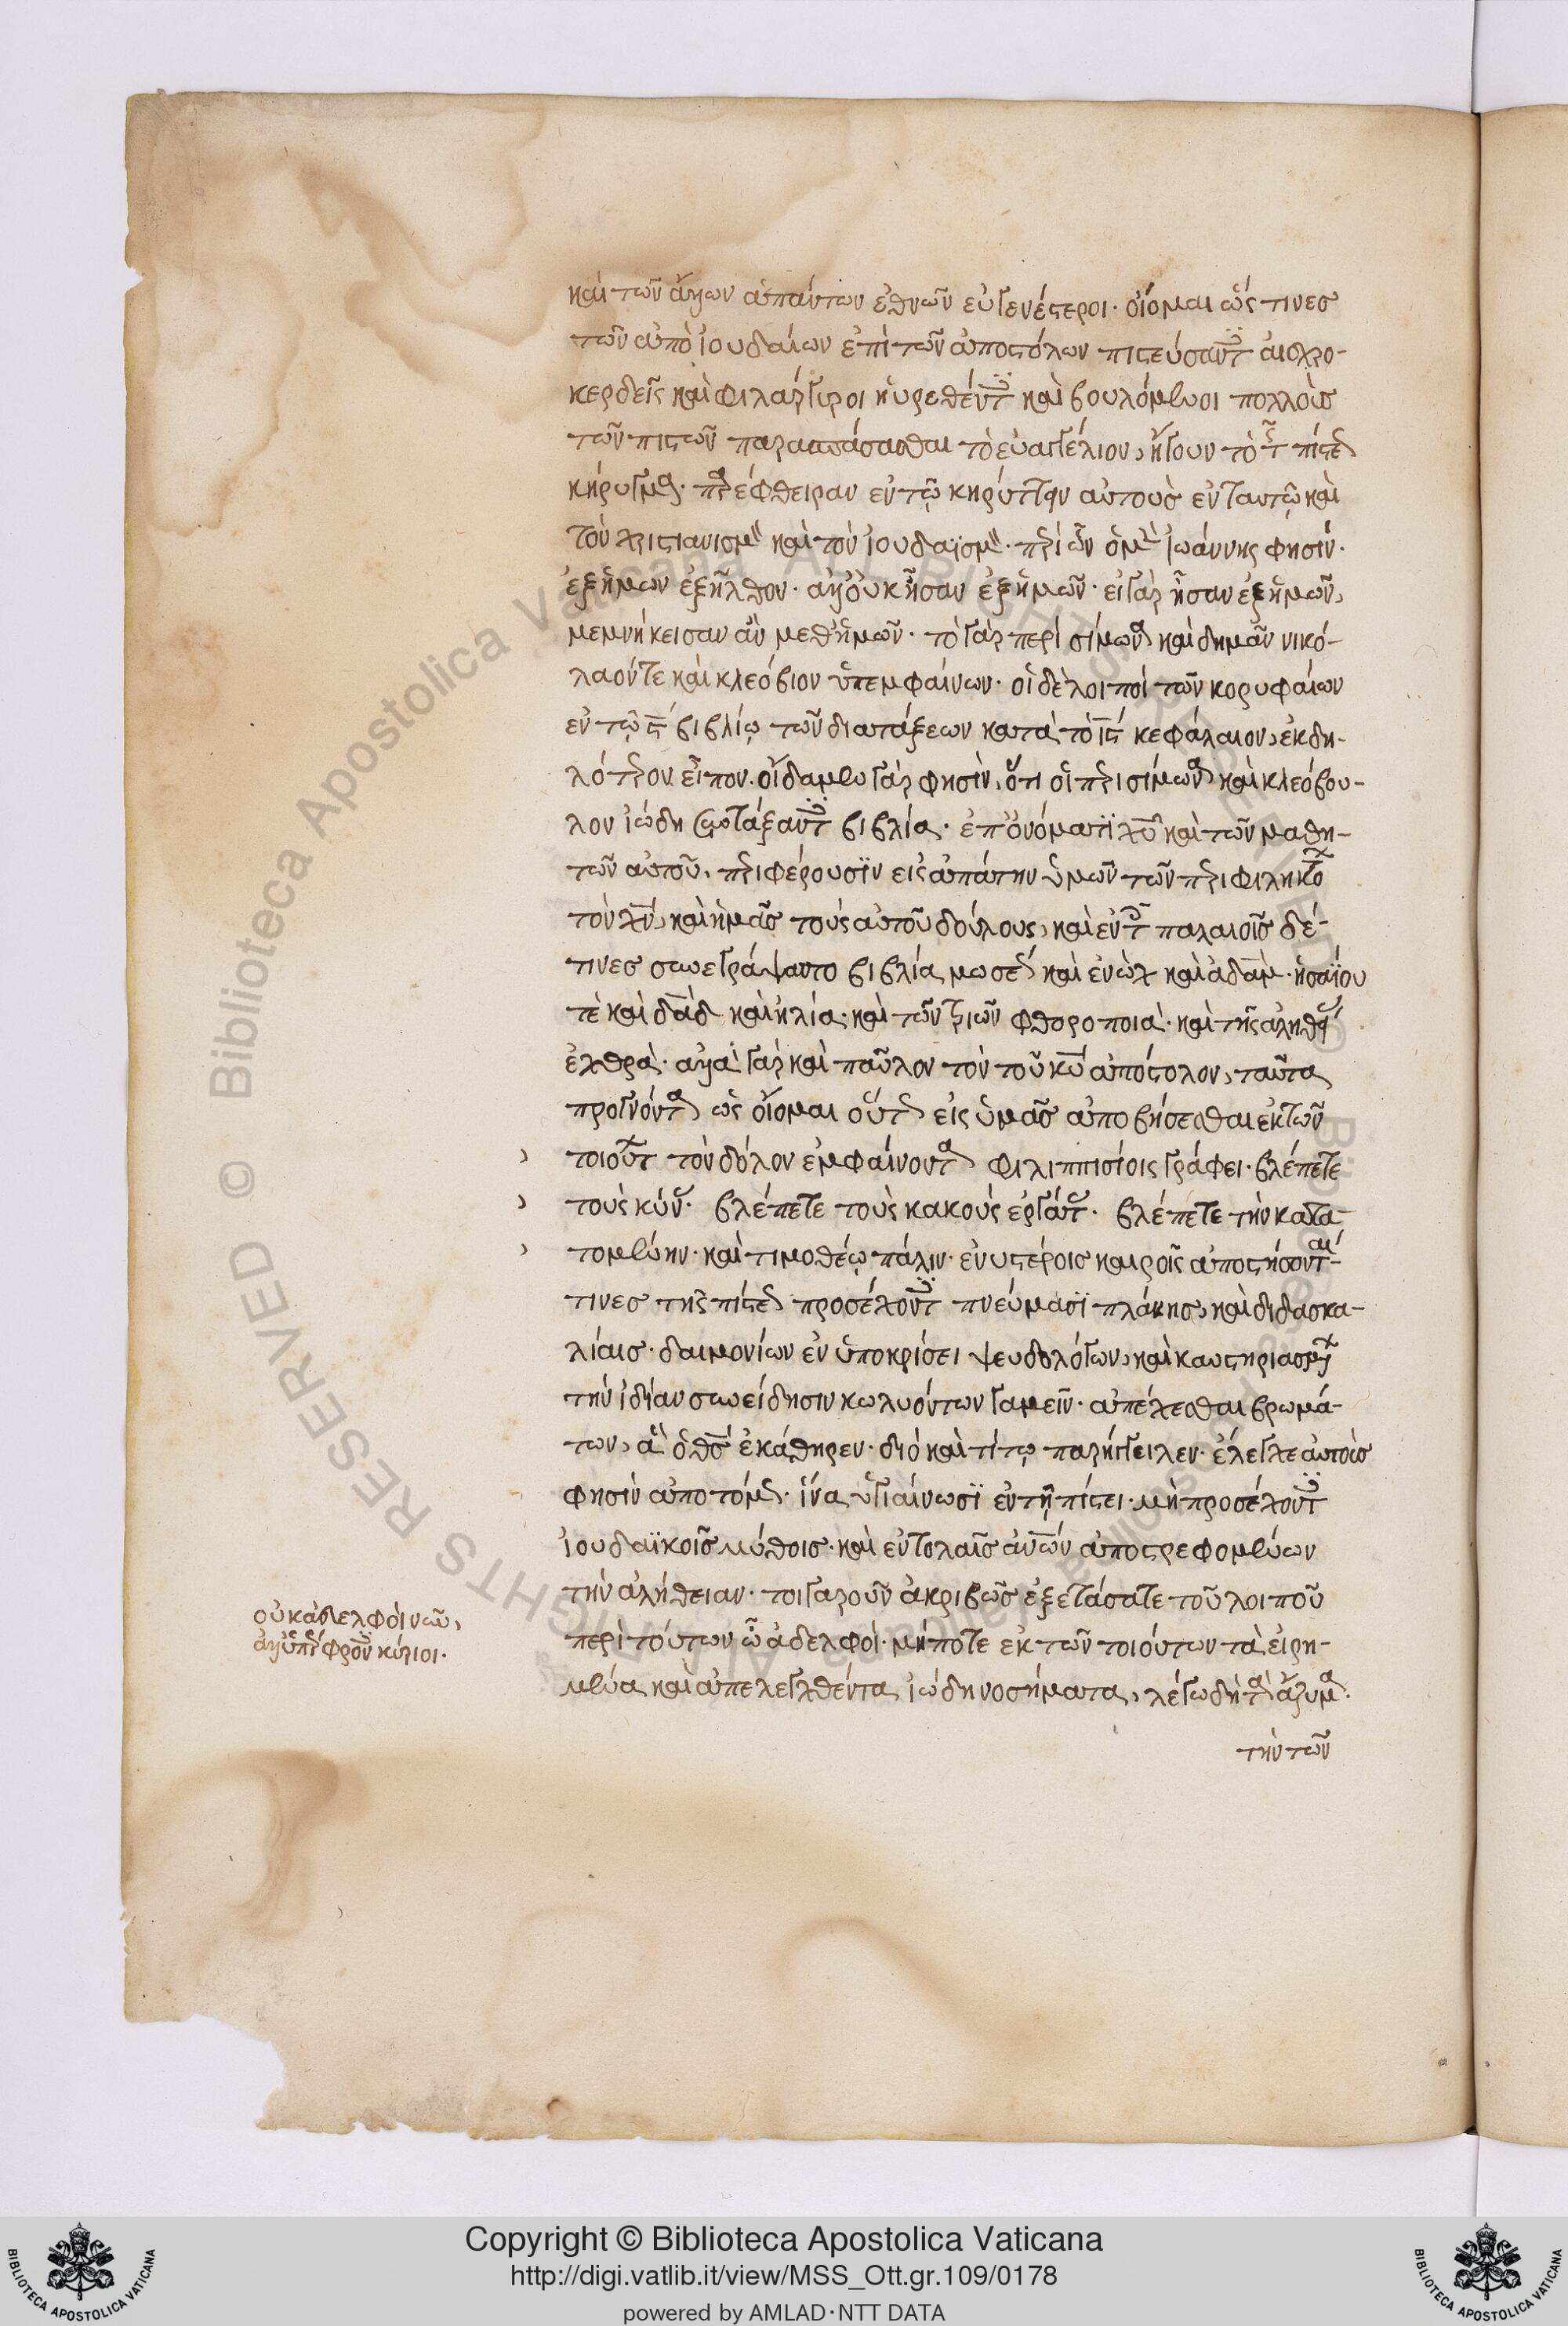 καὶ τῶν ἄλλων ἁπάντων ἐθνῶν εὐγενέστεροι· οἴομαι ὥς τινες
τῶν ἀπὸ ἰουδαίων ἐπὶ τῶν ἀποστόλων πιστεύσαντες αἰσχρο-
κερδεῖς καὶ φιλάργυροι ηὑρεθέντες καὶ βουλόμενοι πολλοὺς
τῶν πιστῶν παρασπάσασθαι τὸ εὐαγγέλιον, ἤγουν τὸ τῆς πίστεως
κήρυγμα· παρέφθειραν ἐν τῷ κηρύττειν αὐτοὺς ἐν ταυτῷ καὶ
τὸν χριστιανισμὸν καὶ τὸν ἰουδαϊσμόν· περὶ ὧν ὁ μὲν ἰωάννης φησίν·
ἐξ ἡμῶν ἐξῆλθον· ἀλλ' οὐκ ἦσαν ἐξ ἡμῶν· εἰ γὰρ ἦσαν ἐξ ἡμῶν,
μεμνήκεισαν ἂν μεθ' ἡμῶν· τὸ γὰρ περὶ σίμωνα καὶ δημᾶν νικό-
λαόν τε καὶ κλεόβιον ὑπεμφαίνων· οἱ δὲ λοιποὶ τῶν κορυφαίων
ἐν τῷ ϛ´ βιβλίῳ τῶν διατάξεων κατὰ τὸ ιϛ´ κεφάλαιον, ἐκδη-
λότερον εἶπον· οἴδαμεν γάρ φησιν, ὅτι οἱ περὶ σίμωνα καὶ κλεόβου-
λον ἰώδη συντάξαντες βιβλία· ἐπ' ὀνόματι χυ καὶ τῶν μαθη-
τῶν αὐτοῦ, περιφέρουσιν εἰς ἀπάτην ὑμῶν τῶν πεφιληκότων
τὸν χν, καὶ ἡμᾶς τοὺς αὐτοῦ δούλους, καὶ ἐν τοῖς παλαιοῖς δέ
τινες συνεγράψαντο βιβλία μωσέως καὶ ἐνὼχ καὶ ἀδάμ· ἡσαΐου
τὲ καὶ δαδ καὶ ἠλία· καὶ τῶν τριῶν φθοροποιὰ· καὶ τῆς ἀληθείας
ἐχθρά· ἀλλὰ γὰρ καὶ παῦλον τὸν τοῦ κυ ἀπόστολον, ταῦτα
προγνόντα ὡς οἴομαι οὕτως εἰς ὑμᾶς ἀποβήσεσθαι ἐκ τῶν
τοιούτων τὸν δόλον ἐμφαίνοντα φιλιππισίοις γράφει· βλέπετε
τοὺς κύνας· βλέπετε τοὺς κακοὺς ἐργάτας· βλέπετε τὴν κατα-
τομένην· καὶ τιμοθέῳ πάλιν· ἐν ὑστέροις καιροῖς ἀποστήσονταί
τινες τῆς πίστεως προσέχοντες πνεύμασι πλάνης, καὶ διδασκα-
λίαις· δαιμονίων ἐν ὑποκρίσει ψευδολόγων, καὶ καυστηριασμένων
τὴν ἰδίαν συνείδησιν κωλυόντων γαμεῖν· ἀπέχεσθαι βρωμά-
των, ἃ ὁ θς ἐκάθηρεν· διὸ καὶ τίτῳ παρήγγειλεν· ἔλεγχε αὐτοὺς
φησὶν ἀποτόμως· ἵνα ὑγιαίνωσι ἐν τῇ πίστει· μὴ προσέχοντες
ἰουδαϊκοῖς μύθοις· καὶ ἐντολαῖς ἀνων ἀποστρεφομένων
τὴν ἀλήθειαν· τοιγαροῦν ἀκριβῶς ἐξετάσατε τοῦ λοιποῦ
περὶ τούτων ὦ ἀδελφοί· μήποτε ἐκ τῶν τοιούτων τὰ εἰρη-
μένα καὶ ἀπελεγχθέντα ἰώδη νοσήματα, λέγω δὴ τὰ ἄζυμα·
τὴν τῶν
οὐκ ἀδελφοὶ νῶ,
Copyright © Biblioteca Apostolica Vaticana
http://digi.vatlib.it/view/MSS_Ott.gr.109/0178
powered by AMLAD·NTT DATA
BIBLIOTECA APOSTOLICA VATICANA
BIBLIOTECA APOSTOLICA VATICANA